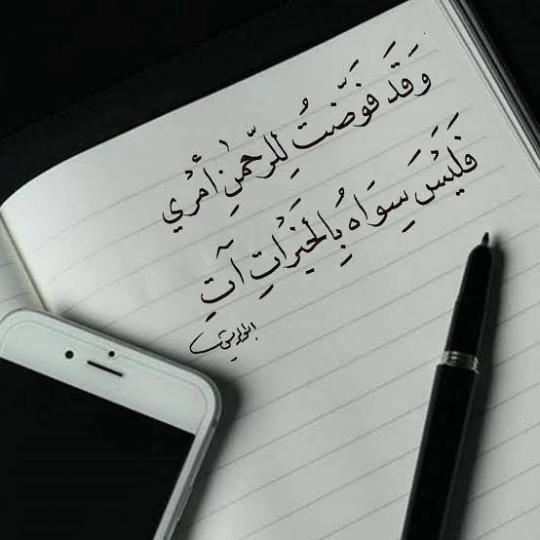 وَقَدَ فَوَّضَتُ لِلرَّحْمٰنِ أَمْرِي
فَلَيْسَ سِوَاهُ بِالخَيْرَاتِ آتِ